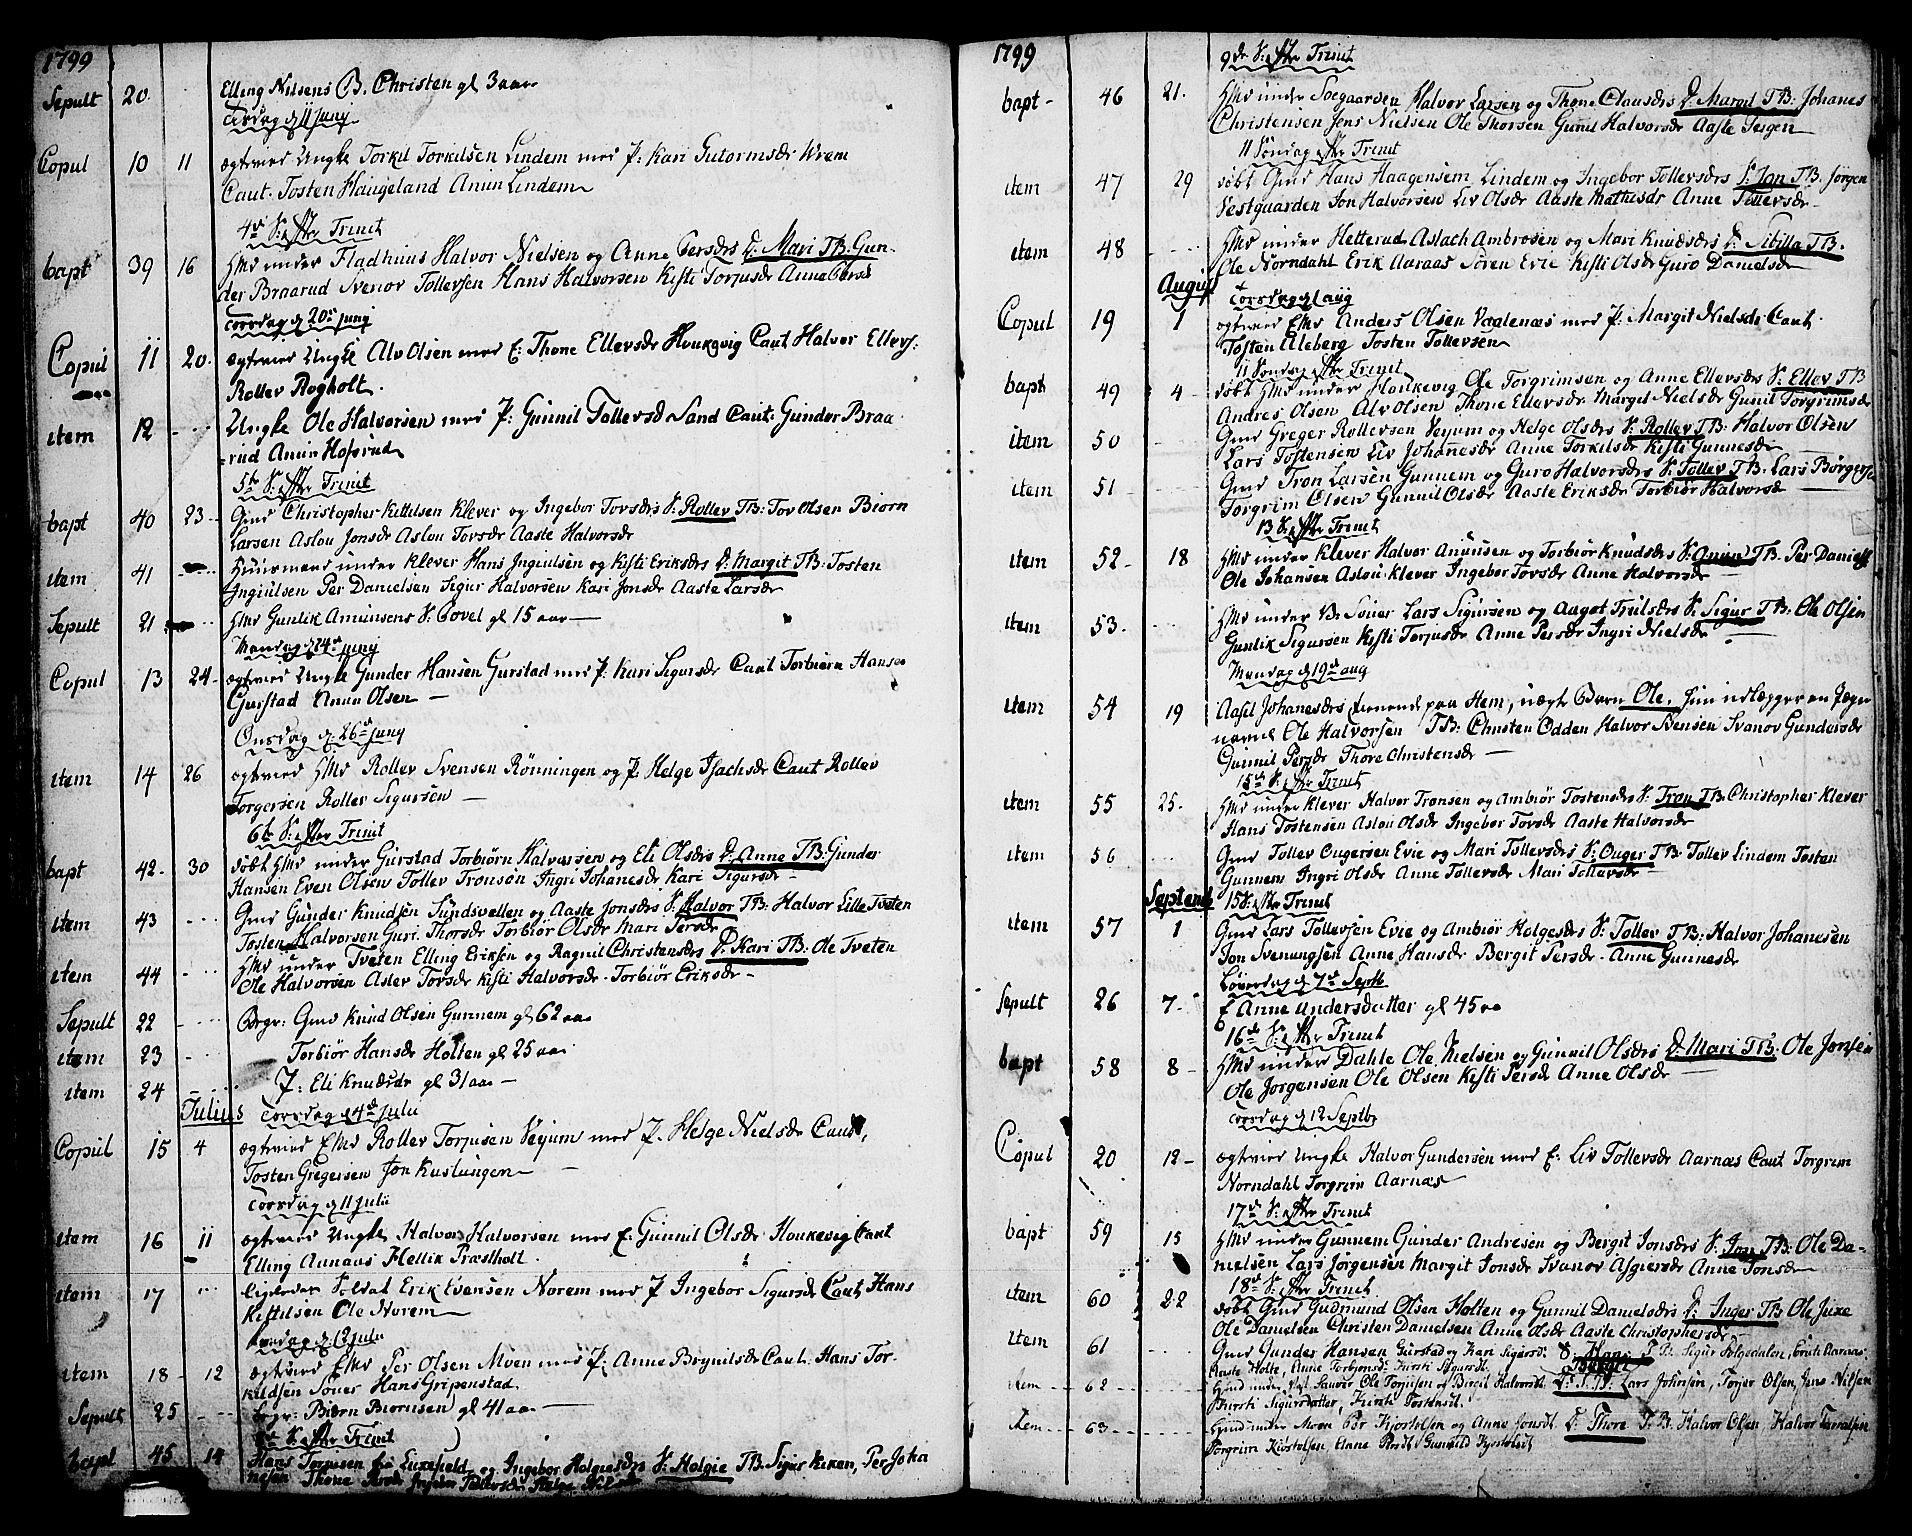 1799
Sepult 20. Elling Nilsens B. Christen gl 3 aar
Tirsdag d 11 juny
Copul 10 11 ægteviet Ungke Torkil Torkilsen Lindem med P: Kari Gutormsdr Wrem
Caut. Tosten Haugeland Anun Lindem
4de S: efter Trinit
bapt 39 16 HMd under Fladhuus Halvor Nielsen og Anne Persdrs D. Mari TB. Gun-
der Braarud Svenor Tollevsen Hans Halvorsen Kisti Torjusdr Anne Persd
Torsdag d 20de juny
Copul 11 20. ægteviet Ungke Alv Olsen med E: Thone Ellevsdr Houkevig Caut Halvor Ellevs:
Rollev Rogholt.
item 12 Ungke Ole Halvorsen med P: Gunnil Tollevsdr Sand Caut: Gunder Braa
rud Anun Hofsrud
5te S: efter Trinit
bapt 40 23 Gmd Christopher Kittilsen Klever og Ingebor Tovsdrs S: Rollev TB: Tov Olsen Biørn
Larsen Aslou Jonsdr Aslou Tovsdr Aaste Halvorsdr
item 41 Huusmand under Klever Hans Ingiulsen og Kisti Eriksdrs D: Margit TB: Tosten
Ingiulsen Per Danielsen Sigur Halvorsen Kari Jonsdr Aaste Larsdr
Sepult 21 HMd Gunlik Amunsens S: Povel gl 15 aar
Mandag d 24de juny
Copul 13 24 ægteviet Ungke Gunder Hansen Gurstad med P: Kari Sigursdr Caut Torbiørn Hansen
Gurstad Anun Olsen
Onsdag d: 26de juny
item 14 26 ægteviet HMd Rollev Svensen Rönningen og P: Helge Isachsdr Caut Rollev
Torgersen Rollev Sigursen
6te S: efter Trinit
bapt 42 30 döbt HMd under Gurstad Torbiørn Halvorsen og Eli Olsdrs D: Anne TB: Gunder
Hansen Even Olsen Tollev Tronsøn Ingri Johanesdr Kari Sigursdr
item 43 Gmd Gunder Knudsen Sundsvellen og Aaste Jonsdrs S: Halvor TB: Halvor Lille Tveten
Tosten Halvorsen Guri Thorsdr Torbiør Olsdr Mari Persdr
item 44 HMd under Tveten Elling Eriksen og Ragnil Christensdrs D: Kari TB: Ole Tveten
Ole Halvorsen Aslev Torsdr Kisti Halvorsdr Torbiør Eriksdr
Sepult 22 Begr: Gmd Knud Olsen Gunnem gl 62 aar
item 23 Torbiør Hansdr Holten gl 25 aar
item 24 P: Eli Knudsdr gl 31 aar
Julius Torsdag d 4de julii
Copul 15 4 ægteviet EMd Rollev Torjusen Vejum med P. Helge Nielsdr Caut,
Tosten Gregersen Jon Kuslungen
Torsdag d 11 julii
item 16 11 ægteviet Ungke Halvor Halvorsen med E. Gunnil Olsdr Houkevig Caut
Elling Aanaas Hellik Præstholt.
item 17 ligeledes Soldat Erik Evensen Norem med P Ingebor Sigursdr Caut Hans
Kittilsen Ole Norem
d 12 julii
item 18 12 ægteviet EMd Per Olsen Moen med P: Anne Brynilsdr Caut. Hans Tor-
kildsen Soner Hans Gripenstad.
Sepult 25 begr: Biørn Biørnsen gl 41 aar
S: efter Trinit
bapt 45 14 Hans Torjusen fra Luxefield og Ingebor Holgesdrs S: Holgie TB. Sigur Kiken, Per Joha
nesen Thone
1799
9de S: efter Trinit
bapt 46 21. HMd under Soegaarden Halvor Larsen og Thone Clausdrs D: Margit TB: Johanes
Christensen Jens Nielsen Ole Thorsen Gunil Halvorsdr Aaste Teigen
11 Søndag efter Trinit
item 47 29 döbt Gmd Hans Haagensem Lindem og Ingebor Tollevsdrs S: Jon TB. Jørgen
Vestgaarden Jon Halvorsen Liv Olsdr Aaste Mathisdr Anne Tollevsdr
item 48 HMd under Hetterud Aslach Ambrosen og Mari Knudsdrs D: Sibilla TB.
Ole Norndahl Erik Aaraas Søren Evie Kisti Olsdr Guro Danielsdr
August
Torsdag d 1 aug
Copul 19 1 ægteviet EMd Anders Olsen Vaalenæs med P: Margit Nielsdr Caut
Tosten Aleberg Tosten Tollevsen
11 Søndag efter Trinit
bapt 49 4 döbt HMd under Haukevig Ole Torgrimsen og Anne Ellevsdrs S: Ellev TB
Andres Olsen Alv Olsen Thone Ellevsdr Margit Nielsdr Gunil Torgrimsdr
item 50 Gmd Greger Rollevsen Vejum og Helge Olsdrs S: Rollev TB: Halvor Olsen
Lars Tostensen Liv Johanesdr Anne Torkilsdr Kisti Gunnesdr
item 51 Gmd Tron Larsen Gunnem og Guro Halvorsdrs S. Tollev TB: Lars Børgersen
Torgrim Olsen Gunnil Olsdr Aaste Eriksdr Torbiør Halvorsd
13 S: efter Trinit
item 52 18 HMd under Klever Halvor Anunsen og Torbiør Knudsdrs S: Anun TB. Per Daniels
Ole Johansen Aslou Klever Ingebor Tovsdr Anne Halvorsdr
item 53. HMd under B. Soner Lars Sigursen og Aagot Trulsdrs S: Sigur TB: Ole Olsen
Gunlik Sigursen Kisti Torjusdr Anne Persdr Ingri Nielsdr
Mandag d 19de aug
item 54 19 Aasel Johanesdrs tienende paa Hem, uægte Barn Ole, hun udlægger en Pige
navnl Ole Halvorsen TB: Christen Odden Halvor Bensen Svanov Gundersdr
Gunnil Persdr Thore Christensdr
15de S: efter Trinit
item 55 25. HMd under Klever Halvor Tronsen og Ambiør Tostensdrs S: Tron TB. Christopher Klever
Hans Tostensen Aslou Olsdr Ingebor Tovsdr Aaste Halvorsdr
item 56 Gmd Tollev Ougersen Evie og Mari Tollevsdrs S: Ouger TB Tollev Lindem Tosten
Gunnem Ingri Olsdr Anne Tollevsdr Mari Tollevsdr
Septemb 15 S: efter Trinit
item 57 1 Gmd Lars Tollevsen Evie og Ambiør Holgesdrs S: Tollev TB: Halvor Johanesen
Jon Svenungsen Anne Hansdr Bergit Persdr Anne Gunnesdr
Løverdag d 7de Septb
Sepult 26 7 E Anne Andersdatter gl 45 aa
16de S: efter Trinit
bapt 58 8 HMd under Dahle Ole Nielsen og Gunnil Olsdrs D: Mari TB: Ole Jonsen
Ole Jorgensen Ole Olsen Kisti Persdr Anne Olsdr
Torsdag d 12 Septb
Copul 20 12 ægteviet Ungke Halvor Gundersen med E: Liv Tollevsdr Aarnæs Caut Torgrim
Norndahl Torgrim Aarnæs
17de S: efter Trinit
bapt 59 15 HMd under Gunnem Gunder Andresen og Bergit Jonsdrs S: Jon TB: Ole Da-
nielsen Lars Jørgensen Margit Jonsdr Svanov Asgiersdr Anne Jonsdr
18de S: efter Trinit
item 60 22 döbt Gmd Gudmund Olsen Holten og Gunnil Danielsdrs D: Inger TB Ole Juxe
Ole Danielsen Christen Danielsen Anne Olsdr Aaste Christophersdr
item 61 Gmd Gunder Hansen Gurstad og Kari Sigursd: S. Hans T.B. Sigur Følgedalen, Erik Aaraas
Aaste Holte, Anne Torbjønsdr Kirsti Sigursdt.
item 62 Hmd under Vest Sauver Ole Torjusen og Birgit Halvorsdt. D: Birgit T.B. Lars Johnsen, Torjer Olsen, Jens Nilsen
Kirsti Sigursdatter, Kirsti Tostensdt.
item 63 Hmd under Moen Per Kjostolsen og Anne Jonsdt D: Thore T.B. Halvor Olsen Halvor Taraldsen
Torgrim Kiøstolsen, Anne Persdt Gunnild Kjostolsdt